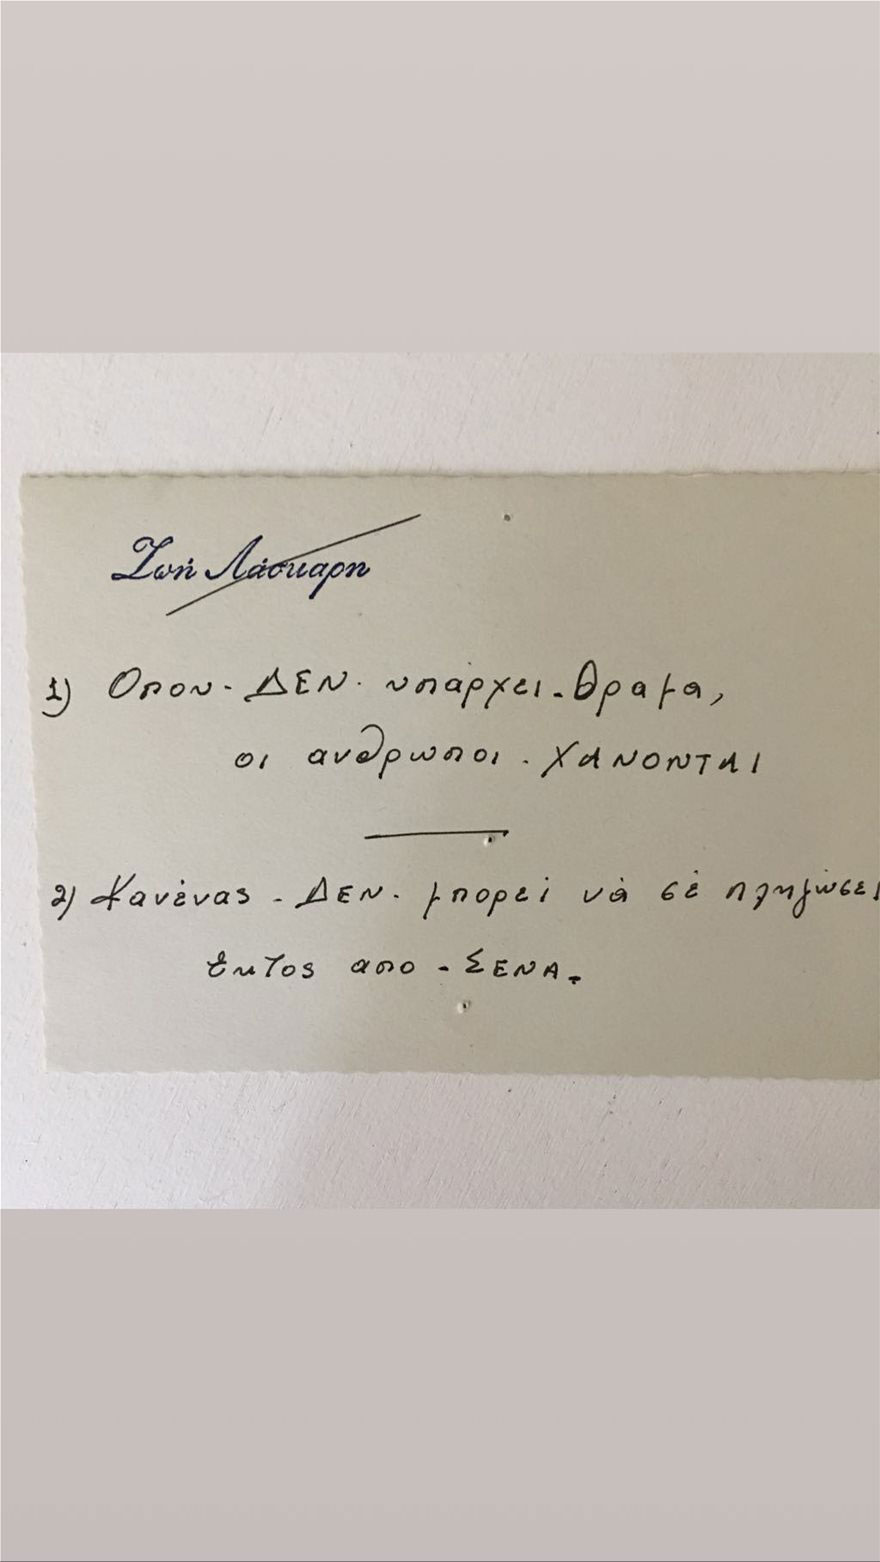 Ζωή Λάσκαρη
1) Οπου - ΔΕΝ - υπάρχει - όραμα,
οι ανθρωποι - ΧΑΝΟΝΤΑΙ
2) Κανένας - ΔΕΝ - μπορεί νά σέ πληγώσει
Εκτος απο - ΣΕΝΑ.